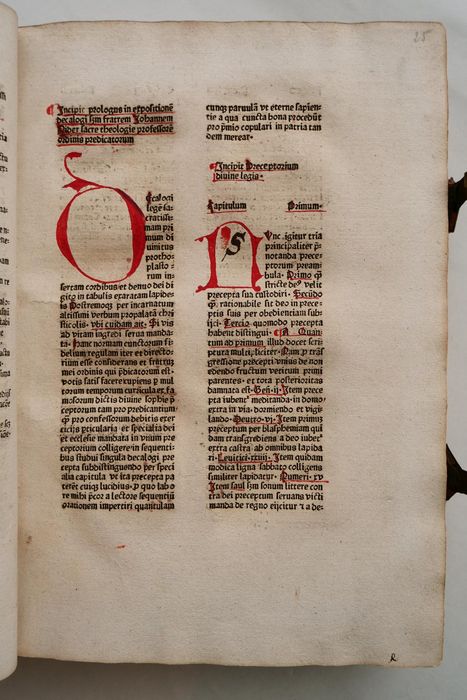 25
Incipit prologus in expositionē
decalogi fm fratrem Johannem
Nider sacre theologie professorē
ordinis predicatorum
D
Ecalogi
legē sa-
cratissi-
mam pri
mum di
uinitus
protho-
plasto-
rum in
sertam cordibus et denuo dei di
gito in tabulis exaratam lapideis
Postremoqȝ per incarnatum
altissimi verbum propalatā chri
sticolis ·
ad vitam ingredi serua manda-
ta · Hanc normam cunctorum fi-
delium regulam iter et directo-
rium esse considerans et fratrum
mei ordinis qui p̄dicatorum est
votis satisfacere cupiens
rum temporum
mosorum dictis diuine sophie p̄
ceptorum tam pro predicantium
ꝙ̄ pro confessorum debitis exer
cicijs
et ecclesie mandata in vnum pre
ceptorium colligere in sequenti-
bus studui singula decalogi pre
cepta subdistinguendo per speci
alia capitula vt ita precepta pa
terēt cuiqȝ lucidius · p̄ quo labo
re mihi p̄cor a lectore sequentiū
orationem impertiri quantulam
cunqȝ paruulā vt eterne sapien-
tie a qua cuncta bona procedūt
pro p̄mio copulari in patria tan
dem merear·
Incipit Preceptorium
diuine legis·
Capitulum Primum·
N s
Vnc igitur tria
principaliter p̄-
notanda prece-
ptorum pream-
bula · Primo ꝙ̄
stricte deꝰ velit
precepta sua custodiri · Secūdo
ꝙ̄ rationabile sit deo in prece-
ptis suis per obedientiam subij
cij · Tercio quomodo precepta
habent distingui · A Quan
tum ad primum illud docet scri
ptura multipliciter · Nam p̄ trās
gressione precepti vnius de non
edendo fructum veticum primi
parentes et tota posterioritas
damnata est · Gen̄ ij · Item prece
pta iubent̄ meditanda in domo
extra in via · dormiendo et vigi
lando · Deutro · vj · Item primū
preceptum per blasphemiam qui
dam transgrediens a deo iubet̄
extra castra ab omnibus lapida
ri · Leuitici · xxiij · Item quidam
modica ligna sabbato colligens
similiter lapidatur · Numeri · xv
Item saul fm sonum littere con
tra dei preceptum seruans victi
manda de regno eijcitur et a de-
R